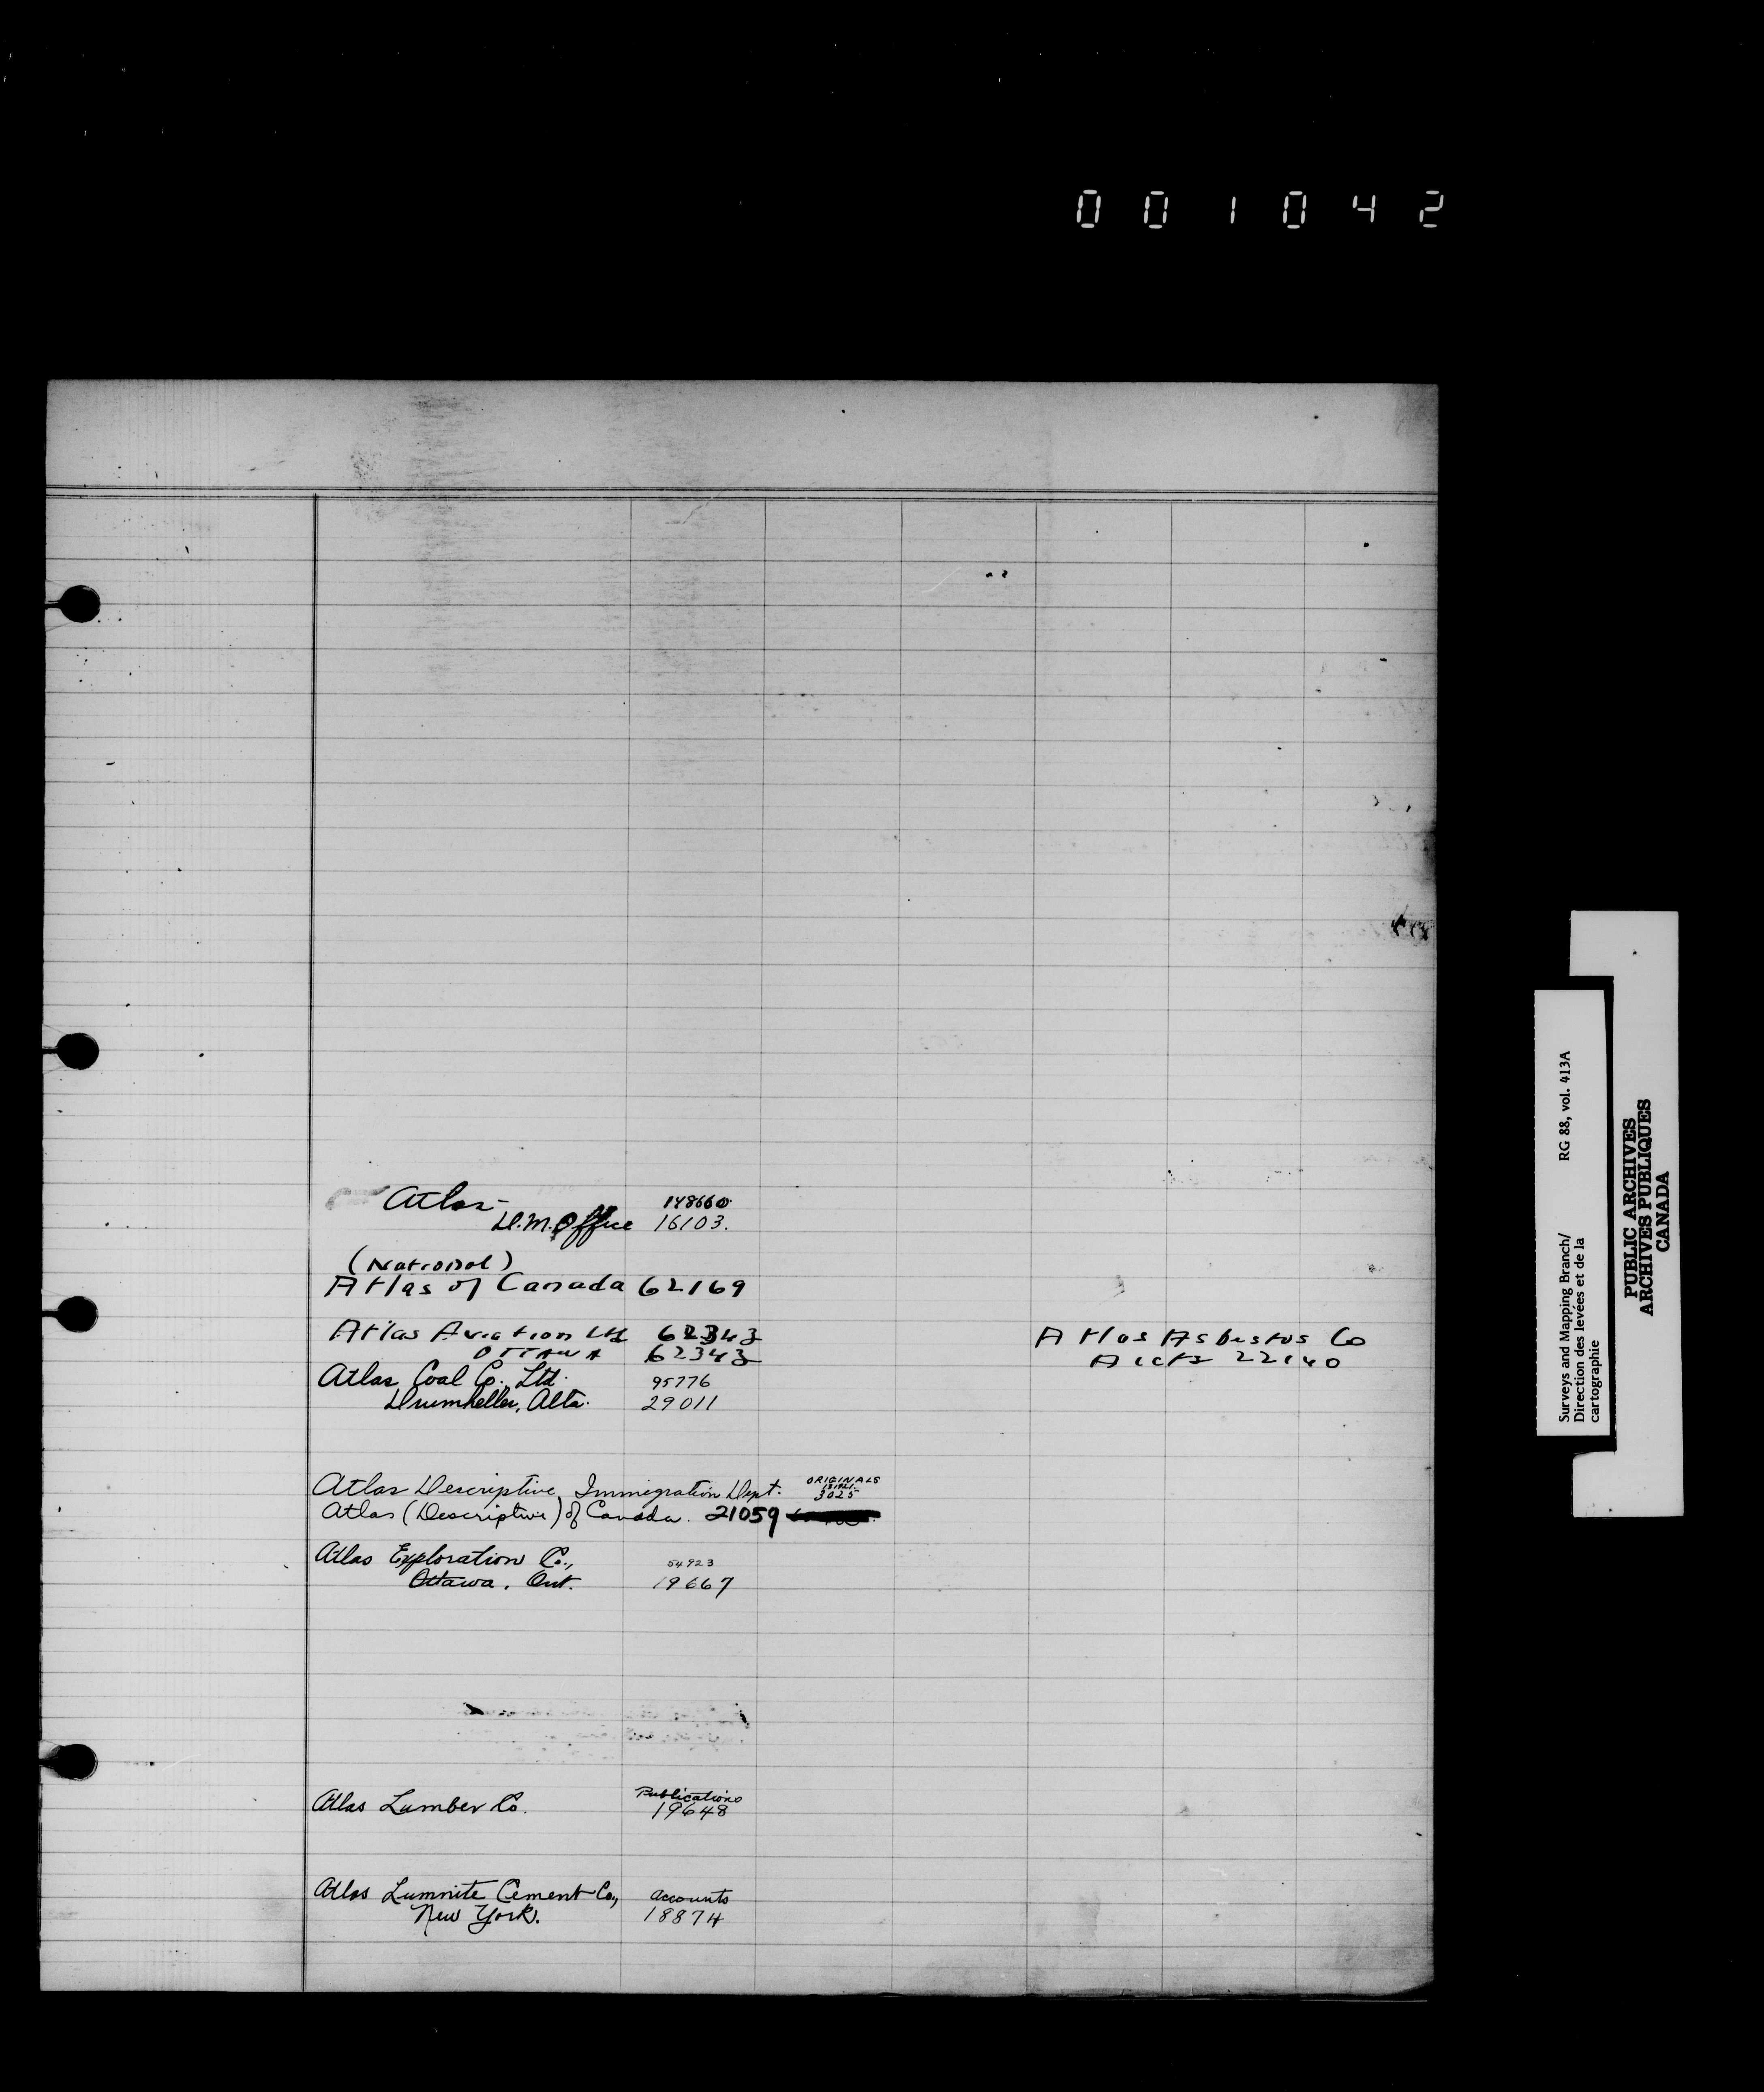 001042
Atlas-
148660
D.M. Office 16103.
(National)
Atlas of Canada 62169
Atlas Aviation Ltd 62343
OTTAWA 62343
Atlas Asbestos Co
Accts 22140
Atlas Coal Co., Ltd. 95776
Drumheller, Alta. 29011
Atlas Descriptive, Immigration Dept. ORIGINALS
3025
Atlas (Descriptive) of Canada. 21059
Atlas Exploration Co., 54923
Ottawa, Ont. 19667
Atlas Lumber Co. Publications
19648
Atlas Lumnite Cement Co., Accounts
New York. 18874
Surveys and Mapping Branch/ RG 88, vol. 413A
Direction des levées et de la
cartographie
PUBLIC ARCHIVES
ARCHIVES PUBLIQUES
CANADA